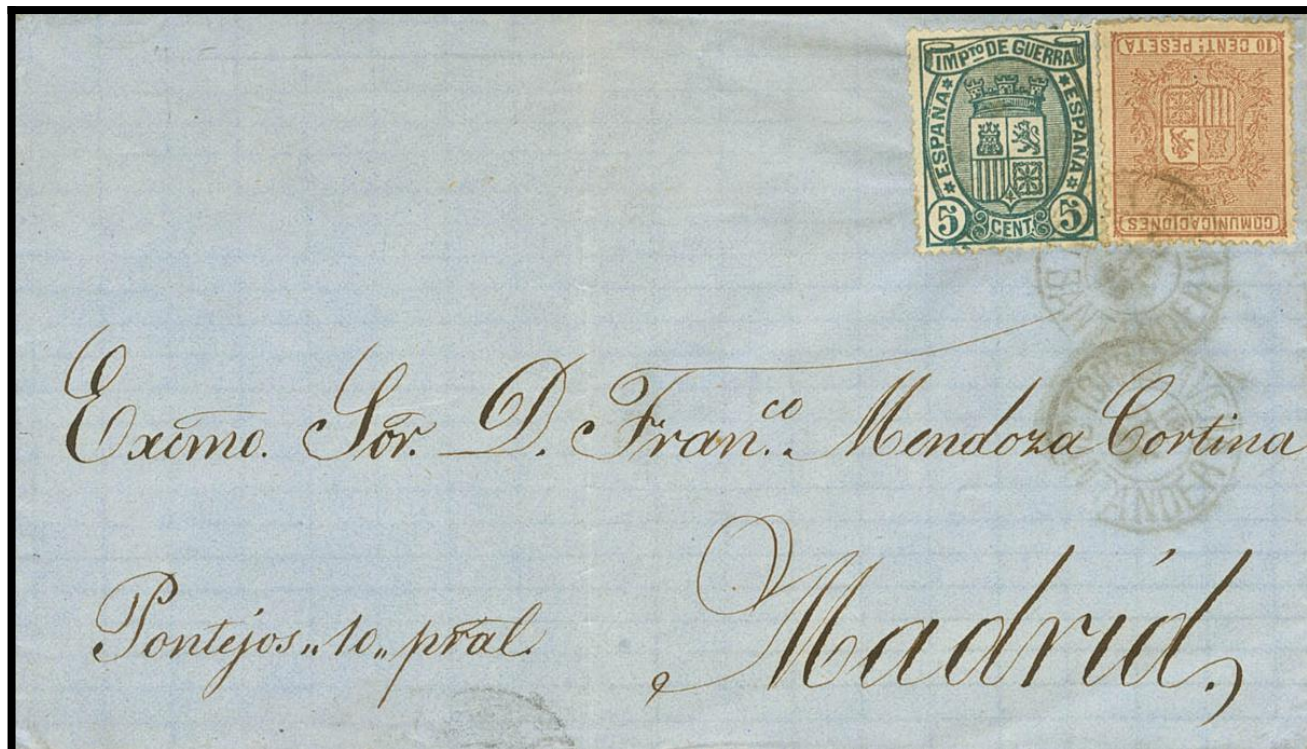 IMPTO DE GUERRA
ESPAÑA
ESPAÑA
5 CENT. 5
10 CENT. PESETA
COMUNICACIONES
Excmo. Sor. D. Franco. Mendoza Cortina
Pontejos "10" pral.
Madrid.
SANTANDER